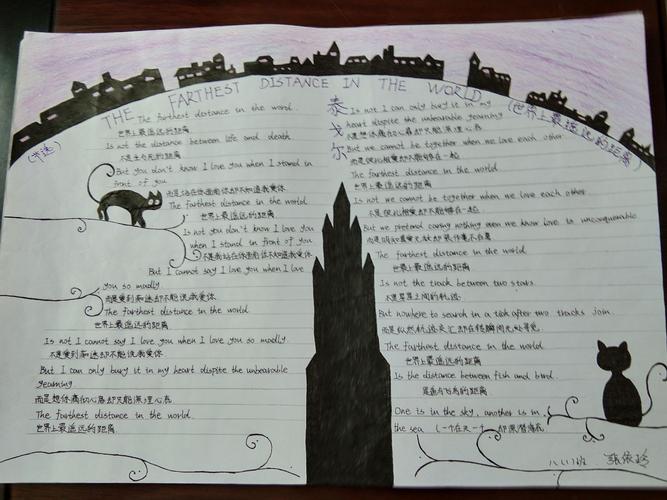 THE FARTHEST DISTANCE IN THE WORLD
(世界上最遥远的距离)
泰戈尔
The farthest distance in the word.
世界上最遥远的距离
Is not the distance between life and death
不是生与死的距离
But you don't know I love you when I stand in
front of you
而是站在你面前却不知道我爱你
The farthest distance in the world
世界上最遥远的距离
Is not you don't know I love you
when I stand in front of you
不是我站在你面前你不知道我爱你
But I cannot say I love you when I love
you so madly
而是爱到痴迷却不能说我爱你
The farthest distance in the world
世界上最遥远的距离
Is not I cannot say I love you when I love you so madly
不是爱到痴迷却不能说我爱你
But I can only bury it in my heart dispite the unbearable
yearning
而是想你痛彻心扉却只能深埋心底
The farthest distance in the world.
世界上最遥远的距离
Is not I can only bury it in my
heart dispite the unbearable yearning
不是想你痛彻心扉却只能深埋心底
But we cannot be together when we love each other
而是彼此相爱却不能够在一起
The farthest distance in the world
世界上最遥远的距离
Is not we cannot be together when we love each other
不是彼此相爱却不能够在一起
But we pretend caring nothing even we know love is unconquerable
The farthest distance in the world
世界上最遥远的距离
Is not the track between two stars
不是星星之间的轨迹
But nowhere to search in a tick after two tracks join
而是纵然轨迹交汇却在转瞬间无处寻觅
The farthest distance in the world
世界上最遥远的距离
Is the distance between fish and bird
是鱼与飞鸟的距离
One is in the sky, another is in
the sea (一个在天一个却深潜海底
八(1)班 张依玲